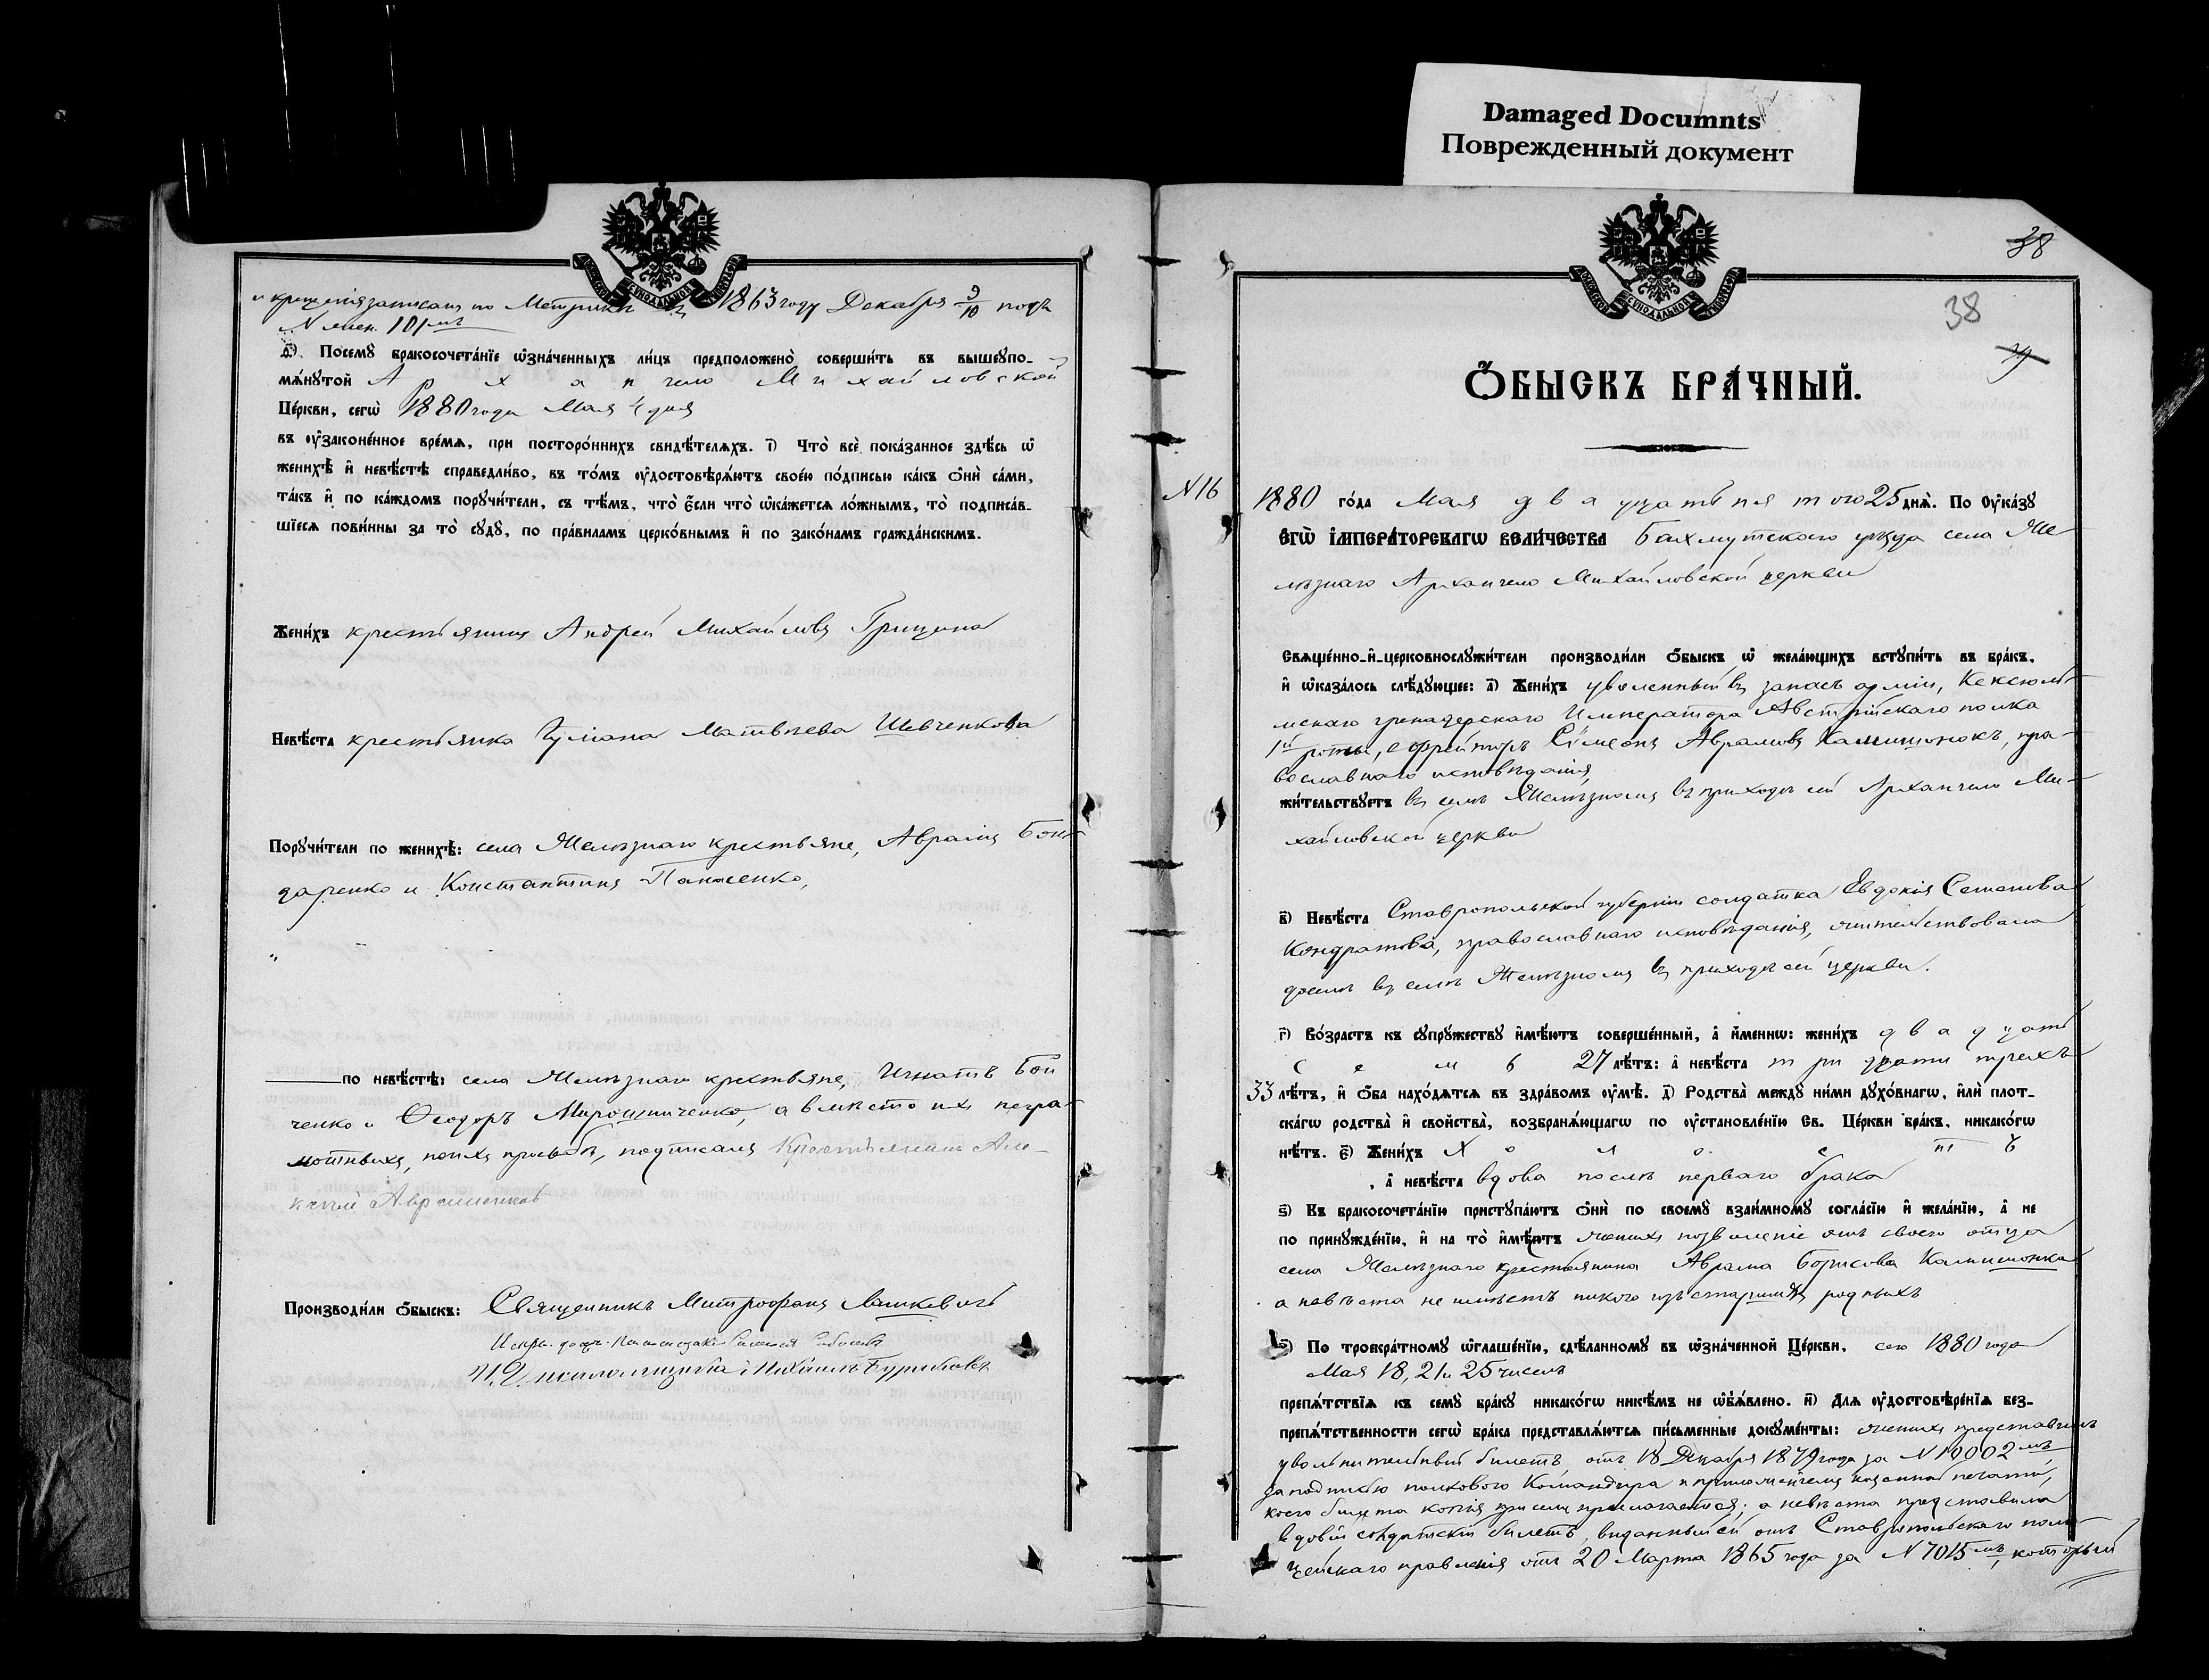 Damaged Documnts
Поврежденный документ
и крещенія записанъ по Метрикѣ за 1863 году Декабря 9/10 подъ
N 101мъ
Посемꙋ̀ бракосочета́нїе ѡ҆зна́ченныхъ ли́цъ предположено̀ соверши́ть въ вышеꙋпо-
мѧ́нꙋтой Архангело Михайловской
Це́ркви, сегѡ̀ 1880 года Мая 4 дня
въ ᲂу҆законе́нное вре́мѧ, при посторо́ннихъ свидѣ́телѧхъ. і҃) Что̀ всѐ пока́занное здѣ́сь ѡ҆
женихѣ̀ и҆ невѣ́стѣ справедли́во, въ то́мъ ᲂу҆достовѣрѧ́ютъ свое́ю по́дписью ка́къ ѻ҆нѝ са́ми,
та́къ и҆ по ка́ждомъ порꙋчи́тели, съ тѣ́мъ, что̀ є҆́сли что̀ ѡ҆ка́жетсѧ ло́жнымъ, то̀ подписа́в-
шїесѧ пови́нны за то̀ сꙋдꙋ̀, по пра́виламъ церко́внымъ и҆ по зако́намъ гражда́нскимъ.
Жени́хъ крестьянинъ Андрей Михайловъ Грицина
Невѣ́ста крестьянка Іуліана Матвѣева Шевченкова
Порꙋчи́тели по женихѣ̀: села Желѣзнаго крестьяне, Аврамъ Бон-
даренко и Константинъ Панасенко,
по невѣ́стѣ: села Желѣзнаго крестьяне, Игнатъ Бой
ченко и Ѳеодоръ Мирошниченко, а вмѣсто ихъ негра-
мотныхъ, по ихъ просьбѣ, подписался крестьянинъ Але-
Производи́ли ѻ҆́быскъ: Священникъ Митрофанъ
И. д. псаломщика Михаилъ
38
38
39
Ѻ҆́БЫСКЪ БРА́ЧНЫЙ.
N 16
1880 го́да Мая двадцать пятого 25 днѧ̀. По Оу҆ка́зꙋ
Є҆ГѠ̀ І҆МПЕРА́ТОРСКАГѠ ВЕЛИ́ЧЕСТВА Бахмутскаго уѣзда села Же
лѣзнаго Архангело Михайловской церкви
Свѧще́нно-и҆-церковнослꙋжи́тели производи́ли ѻ҆́быскъ ѡ҆ жела́ющихъ встꙋпи́ть въ бра́къ,
и҆ ѡ҆каза́лось слѣ́дꙋющее: а҃) Жени́хъ уволенный въ запасъ арміи, Кексголь-
мскаго гренадерскаго Императора Австрійскаго полка
1й роты, ефрейторъ Сѵмеонъ Аврамовъ Калишонокъ, пра-
вославнаго исповѣданія,
жи́тельствꙋетъ въ селѣ Желѣзномъ въ приходѣ сей Архангело Ми-
хайловской церкви
в҃) Невѣ́ста Ставропольской губерніи солдатка Евдокія Семенова
Кондратова, православнаго исповѣданія, жительствовала
доселѣ въ селѣ Желѣзномъ въ приходѣ сей церкви.
г҃) Во́зрастъ къ сꙋпрꙋ́жествꙋ и҆мѣ́ютъ соверше́нный, а҆ и҆́меннѡ: жени́хъ двадцать
семь 27 лѣ́тъ: а҆ невѣ́ста тридцати трехъ
33 лѣ́тъ, и҆ ѻ҆́ба нахо́дѧтсѧ въ здра́вомъ ᲂу҆мѣ̀. д҃) Родства̀ междꙋ̀ ни́ми дꙋхо́внагѡ, и҆лѝ плот-
ска́гѡ родства̀ и҆ сво́йства̀, возбранѧ́ющагѡ по ᲂу҆становле́нїю Св. Це́ркви бра́къ, никако́гѡ
нѣ́тъ. є҃) Жени́хъ Холостъ
, а҆ невѣ́ста вдова послѣ перваго брака
ѕ҃) Къ бракосочета́нїю пристꙋпа́ютъ ѻ҆нѝ по своемꙋ̀ взаи́мномꙋ согла́сїю и҆ жела́нїю, а҆ не
по принꙋжде́нїю, и҆ на то̀ и҆мѣ́ютъ женихъ позволеніе отъ своего отца
села Желѣзнаго крестьянина Аврама Борисова Калишонка
а невѣста не имѣетъ никого изъ старшихъ родныхъ
з҃) По троекра́тномꙋ ѡ҆глаше́нїю, сдѣ́ланномꙋ въ ѡ҆зна́ченной Це́ркви, сего 1880 года
Мая 18, 21 и 25 чиселъ
препѧ́тствїѧ къ семꙋ̀ бра́кꙋ никако́гѡ никѣ́мъ не ѡ҆б̾ѧ́влено. и҃) Длѧ ᲂу҆достовѣре́нїѧ без-
препѧ́тственности сегѡ̀ бра́ка представлѧ́ютсѧ пи́сьменные докꙋме́нты: женихъ представилъ
увольнительный билетъ отъ 18 Декабря 1879 года за N 10002мъ
за подписью полковаго Командира и приложеніемъ казенной печати,
коего билета копія при семъ прилагается; а невѣста представила
вдовій солдатскій билетъ, выданный ей отъ Ставропольскаго поли-
цейскаго правленія отъ 20 Марта 1865 года за N 7015мъ, который